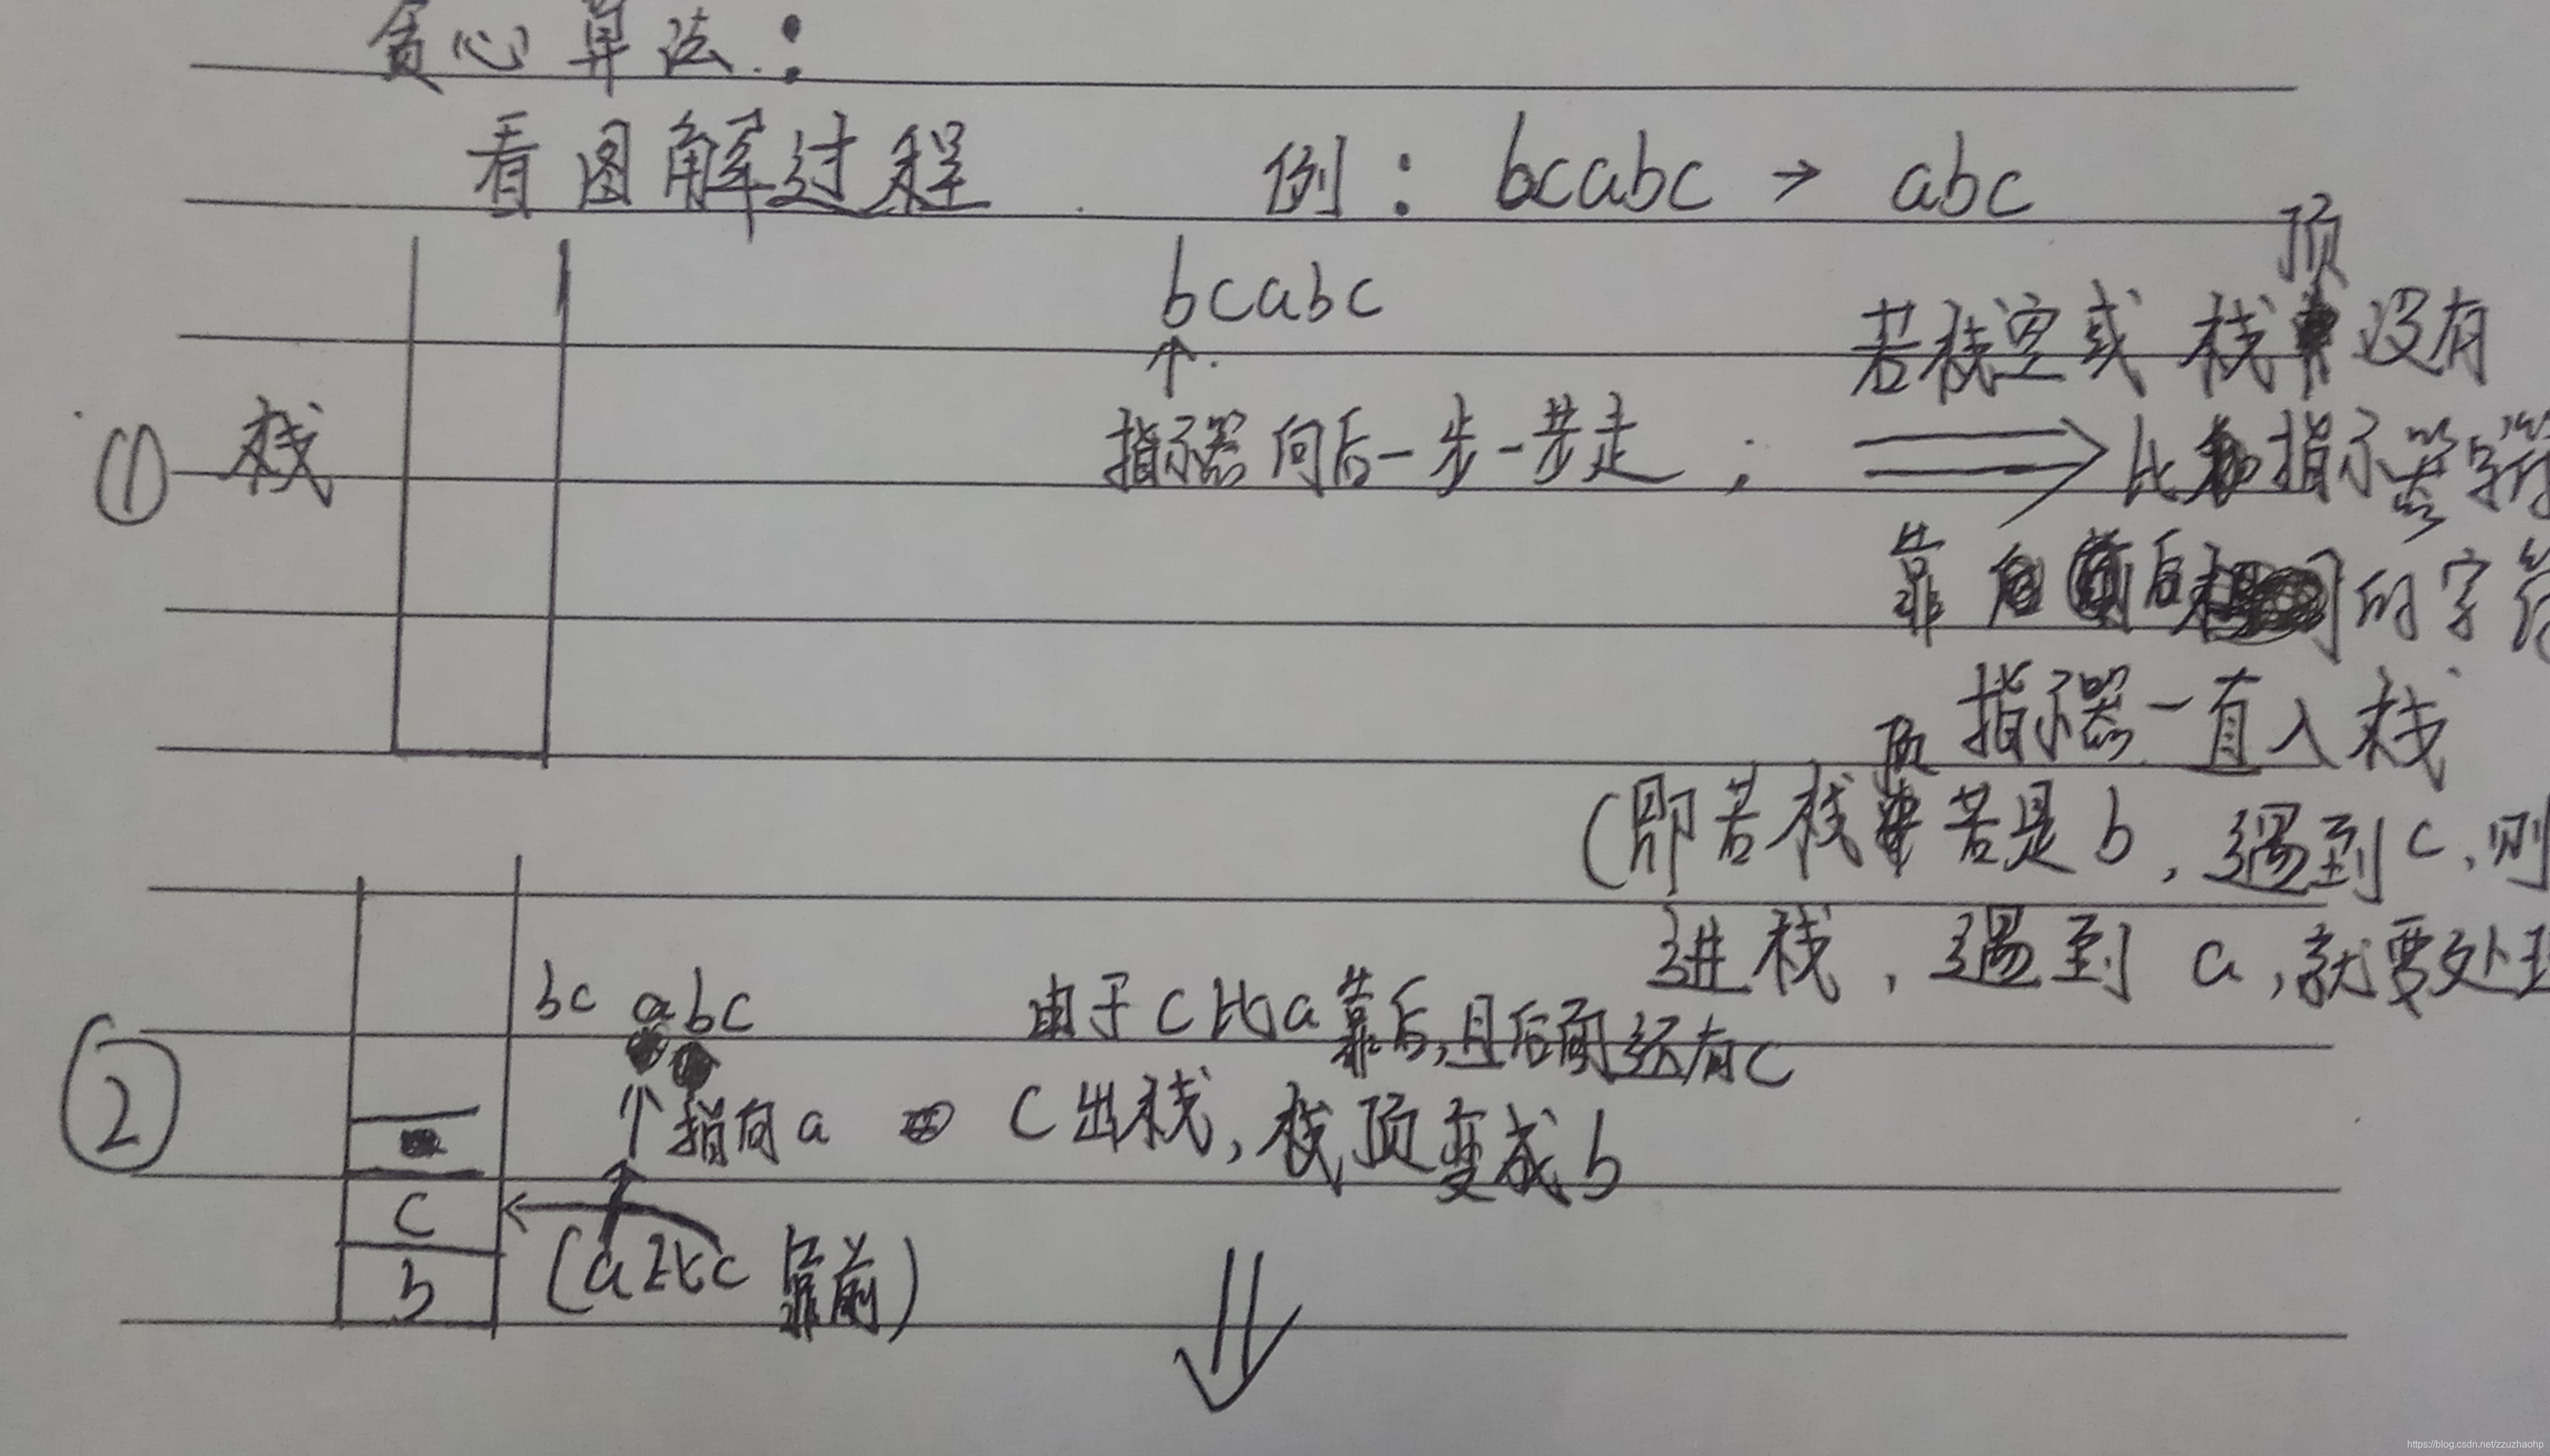 贪心算法:
看图解过程 例: bcabc → abc
bcabc
若栈空或栈顶没有
① 栈
指示器向后一步一步走; ⇒ 比指示器字符
靠后的字符
指示器一直入栈
(即若栈顶若是b,遇到c,则
进栈,遇到a,就要处理
②
bc abc
由于c比a靠后,且后面还有c
↑指向a c出栈,栈顶变成b
c
b
(a比c靠前)
https://blog.csdn.net/zzuzhaohp